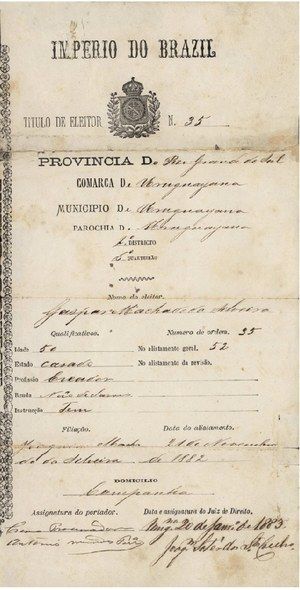 IMPERIO DO BRAZIL
TITULO DE ELEITOR N. 35
PROVINCIA D. Rio Grande do Sul
COMARCA De Uruguayana
MUNICIPIO De Uruguayana
PAROCHIA D. Uruguayana
1º DISTRICTO
6º QUARTEIRÃO
Nome do eleitor.
Gaspar Machado da Silveira
Qualificativos. Numero de ordem. 35
Idade 50 No alistamento geral. 52
Estado casado No alistamento da revisão.
Profissão Creador
Renda
Instrucção Tem
Filiação. Data do alistamento.
Joaquim Macha 21 de Novembro
do da Silveira de 1882
DOMICILIO
Campanha
Assignatura do portador. Data e assignatura do Juiz de Direito.
20 de Janr. de 1883
Como Procurador
Antonio